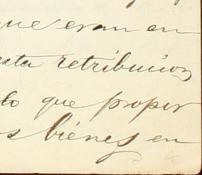 que eran en
esta retribucion
lo que propor
s bienes en